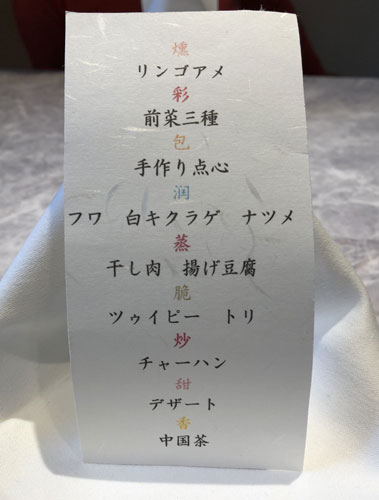 燻
リンゴアメ
彩
前菜三種
包
手作り点心
润
フワ 白キクラゲ ナツメ
蒸
干し肉 揚げ豆腐
脆
ツゥイピー トリ
炒
チャーハン
甜
デザート
香
中国茶